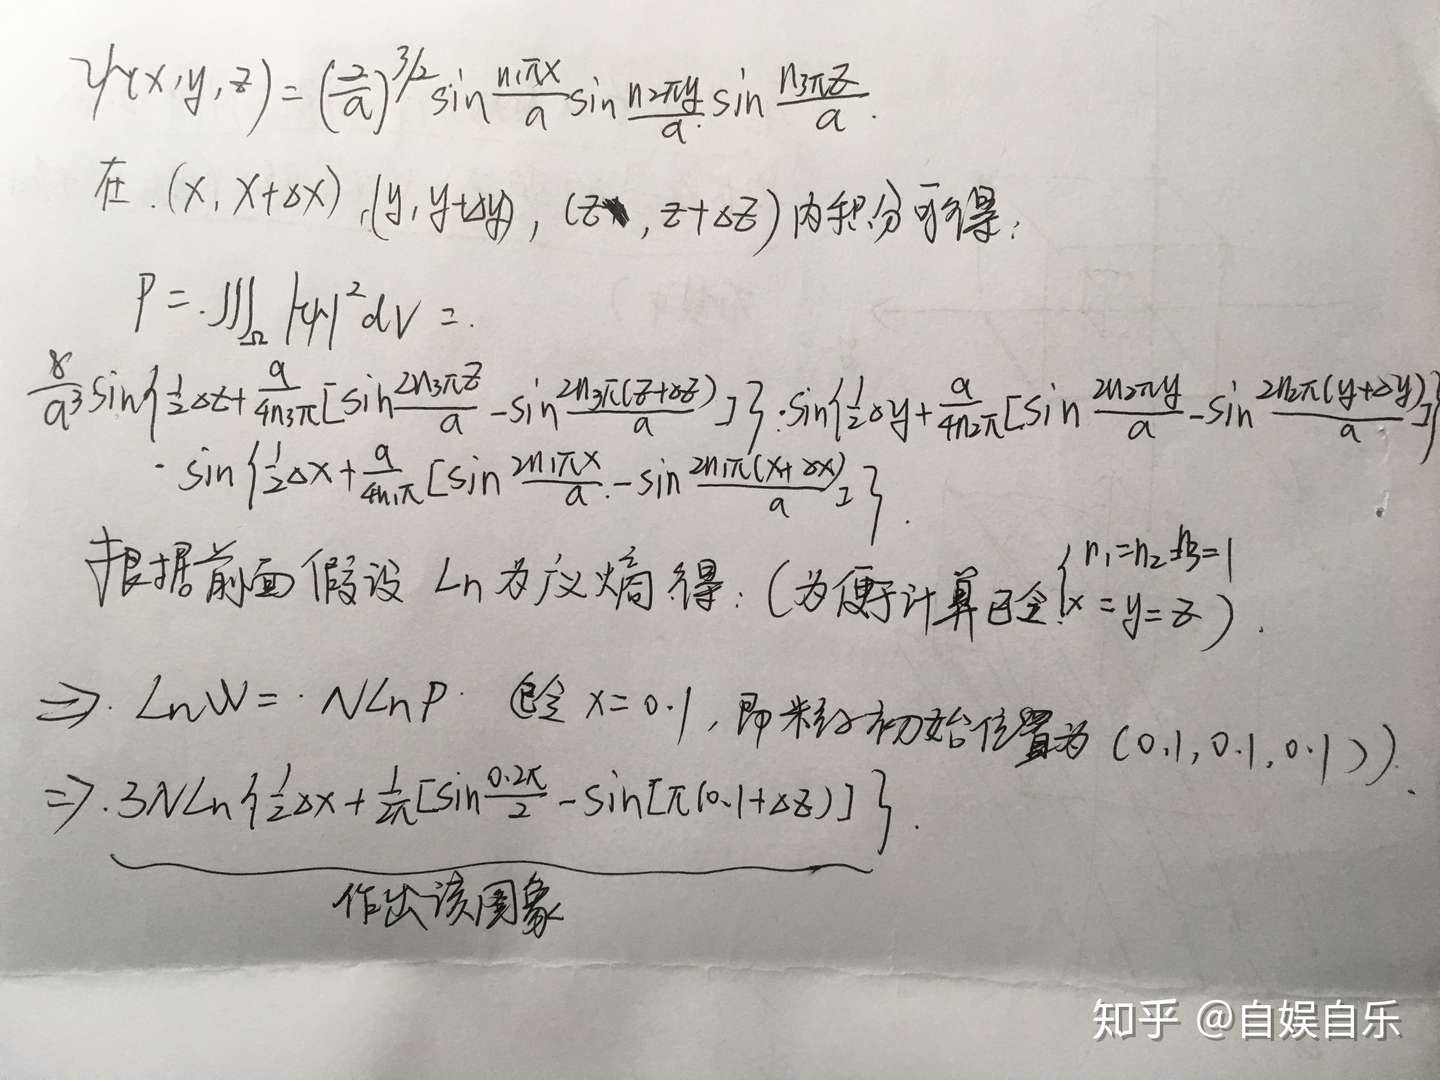 ψ(x,y,z)=(2/a)^{3/2} sin n₁πx/a sin n₂πy/a sin n₃πz/a.
在.(x,x+Δx),(y,y+Δy),(z,z+Δz)内积分可得:
P=.∭_Ω |ψ|²dV=.
8/a³ sin{1/2Δz+a/4n₃π[sin 2n₃πz/a-sin 2n₃π(z+Δz)/a]}·sin{1/2Δy+a/4n₂π[sin 2n₂πy/a-sin 2n₂π(y+Δy)/a]}
·sin{1/2Δx+a/4n₁π[sin 2n₁πx/a.-sin 2n₁π(x+Δx)/a]}.
根据前面假设 Ln为广义熵得:(为便于计算已令{n₁=n₂=n₃=1 x=y=z).
⇒.LnW=·NLnP·(已令x=0.1,即粒子初始位置为(0.1,0.1,0.1)).
⇒.3NLn{1/2Δx+1/2π[sin 0.2π/2-sin[π(0.1+Δz)]}.
作出该图象
知乎 @自娱自乐